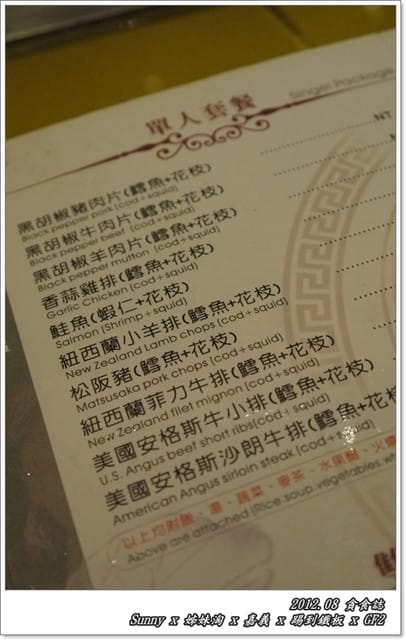 單人套餐
Singel Package
NT
黑胡椒豬肉片(鱈魚+花枝)
Black pepper pork (cod+squid)
黑胡椒牛肉片(鱈魚+花枝)
Black pepper beef (cod+squid)
黑胡椒羊肉片(鱈魚+花枝)
Black pepper mutton (cod+squid)
香蒜雞排(鱈魚+花枝)
Garlic Chicken (cod+squid)
鮭魚(蝦仁+花枝)
Salmon (Shrimp+squid)
紐西蘭小羊排(鱈魚+花枝)
New Zealand Lamb chops (cod+squid)
松阪豬(鱈魚+花枝)
Matsusaka pork chops (cod+squid)
紐西蘭菲力牛排(鱈魚+花枝)
New Zealand filet mignon (cod+squid)
美國安格斯牛小排(鱈魚+花枝)
U.S. Angus beef short ribs(cod+squid)
美國安格斯沙朗牛排(鱈魚+花枝
American Angus sirloin steak (cod+squid)
以上均附飯、湯、蔬菜、麥茶、水果醋、火燒
Above are attached (Rice.soup.vegetables.wh
2012.08 貪食誌
Sunny x 姊妹淘 x 嘉義 x 瑒到鐵板 x GF2